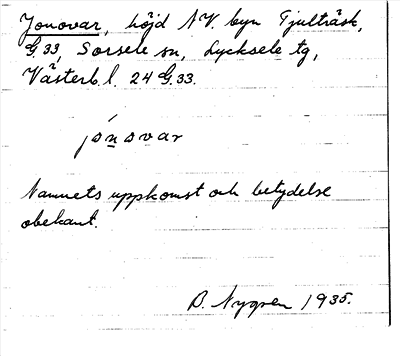 Jonovar, höjd N.V. byn Tjulträsk,
G.33, Sorsele sn, Lycksele tg,
Västerb. l. 24 G.33.
jónovar
Namnets uppkomst och betydelse
obekant.
B. Nygren 1935.